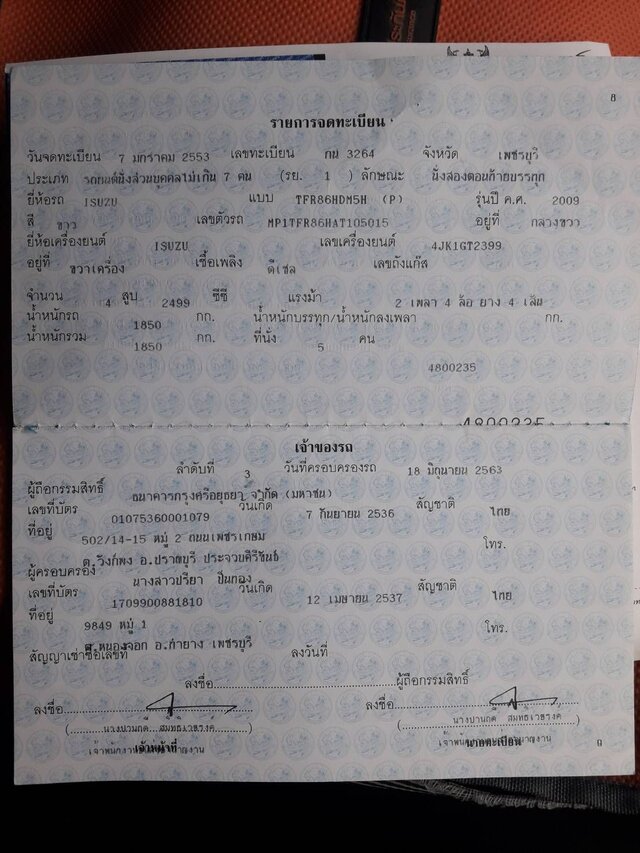 8
รายการจดทะเบียน
วันจดทะเบียน 7 มกราคม 2553 เลขทะเบียน กน 3264 จังหวัด เพชรบุรี
ประเภท รถยนต์นั่งส่วนบุคคลไม่เกิน 7 คน (รย. 1 ) ลักษณะ นั่งสองตอนท้ายบรรทุก
ยี่ห้อรถ ISUZU แบบ TFR86HDM5H (P) รุ่นปี ค.ศ. 2009
สี ขาว เลขตัวรถ MP1TFR86HAT105015 อยู่ที่ กลางขวา
ยี่ห้อเครื่องยนต์ ISUZU เลขเครื่องยนต์ 4JK1GT2399
อยู่ที่ ขวาเครื่อง เชื้อเพลิง ดีเซล เลขถังแก๊ส
จำนวน 4 สูบ 2499 ซีซี แรงม้า 2 เพลา 4 ล้อ ยาง 4 เส้น
น้ำหนักรถ 1850 กก. น้ำหนักบรรทุก/น้ำหนักลงเพลา กก.
น้ำหนักรวม 1850 กก. ที่นั่ง 5 คน
4800235
4800235
เจ้าของรถ
ลำดับที่ 3 วันที่ครอบครองรถ 18 มิถุนายน 2563
ผู้ถือกรรมสิทธิ์ ธนาคารกรุงศรีอยุธยา จำกัด (มหาชน)
เลขที่บัตร 01075360001079 วันเกิด 7 กันยายน 2536 สัญชาติ ไทย
ที่อยู่ 502/14-15 หมู่ 2 ถนนเพชรเกษม โทร.
ต.วังก์พง อ.ปราณบุรี ประจวบคีรีขันธ์
ผู้ครอบครอง นางสาวปรียา ปั้นทอง
เลขที่บัตร 1709900881810 วันเกิด 12 เมษายน 2537 สัญชาติ ไทย
ที่อยู่ 9849 หมู่ 1 โทร.
ต.หนองจอก อ.ท่ายาง เพชรบุรี
สัญญาเช่าซื้อเลขที่ ลงวันที่
ลงชื่อ ผู้ถือกรรมสิทธิ์
ลงชื่อ ลงชื่อ
เจ้าหน้าที่ นายทะเบียน ถ